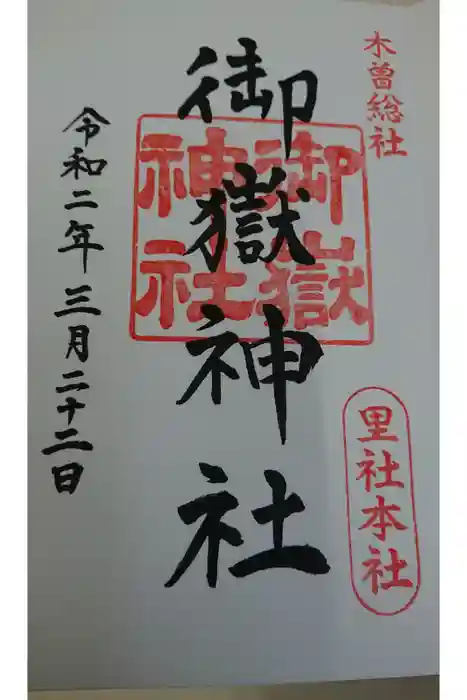 木曽総社
里社本社
御嶽神社
御嶽
神社
令和二年三月二十二日